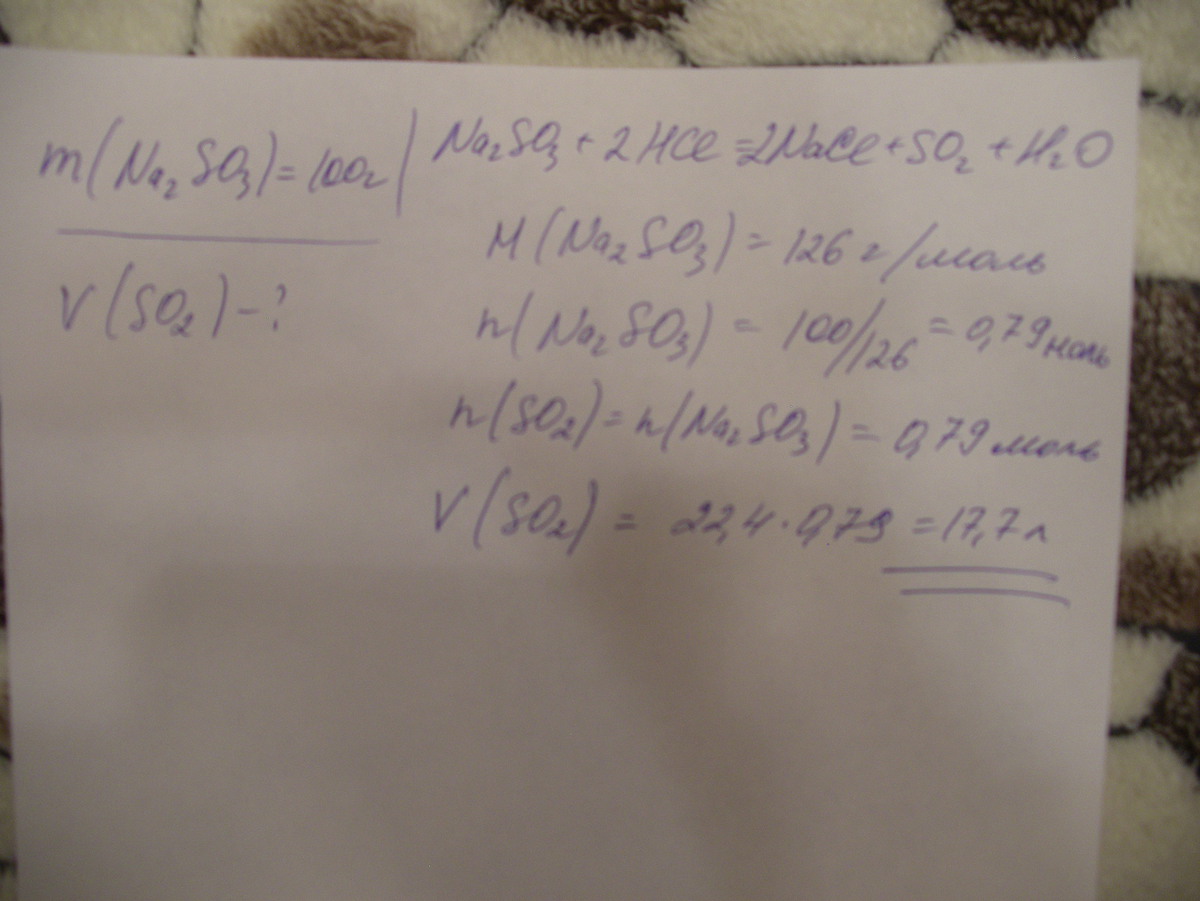 m(Na₂SO₃)=100г
V(SO₂)-?
Na₂SO₃+2HCl=2NaCl+SO₂+H₂O
M(Na₂SO₃)=126г/моль
n(Na₂SO₃)=100/126=0,79моль
n(SO₂)=n(Na₂SO₃)=0,79моль
V(SO₂)=22,4·0,79=17,7л